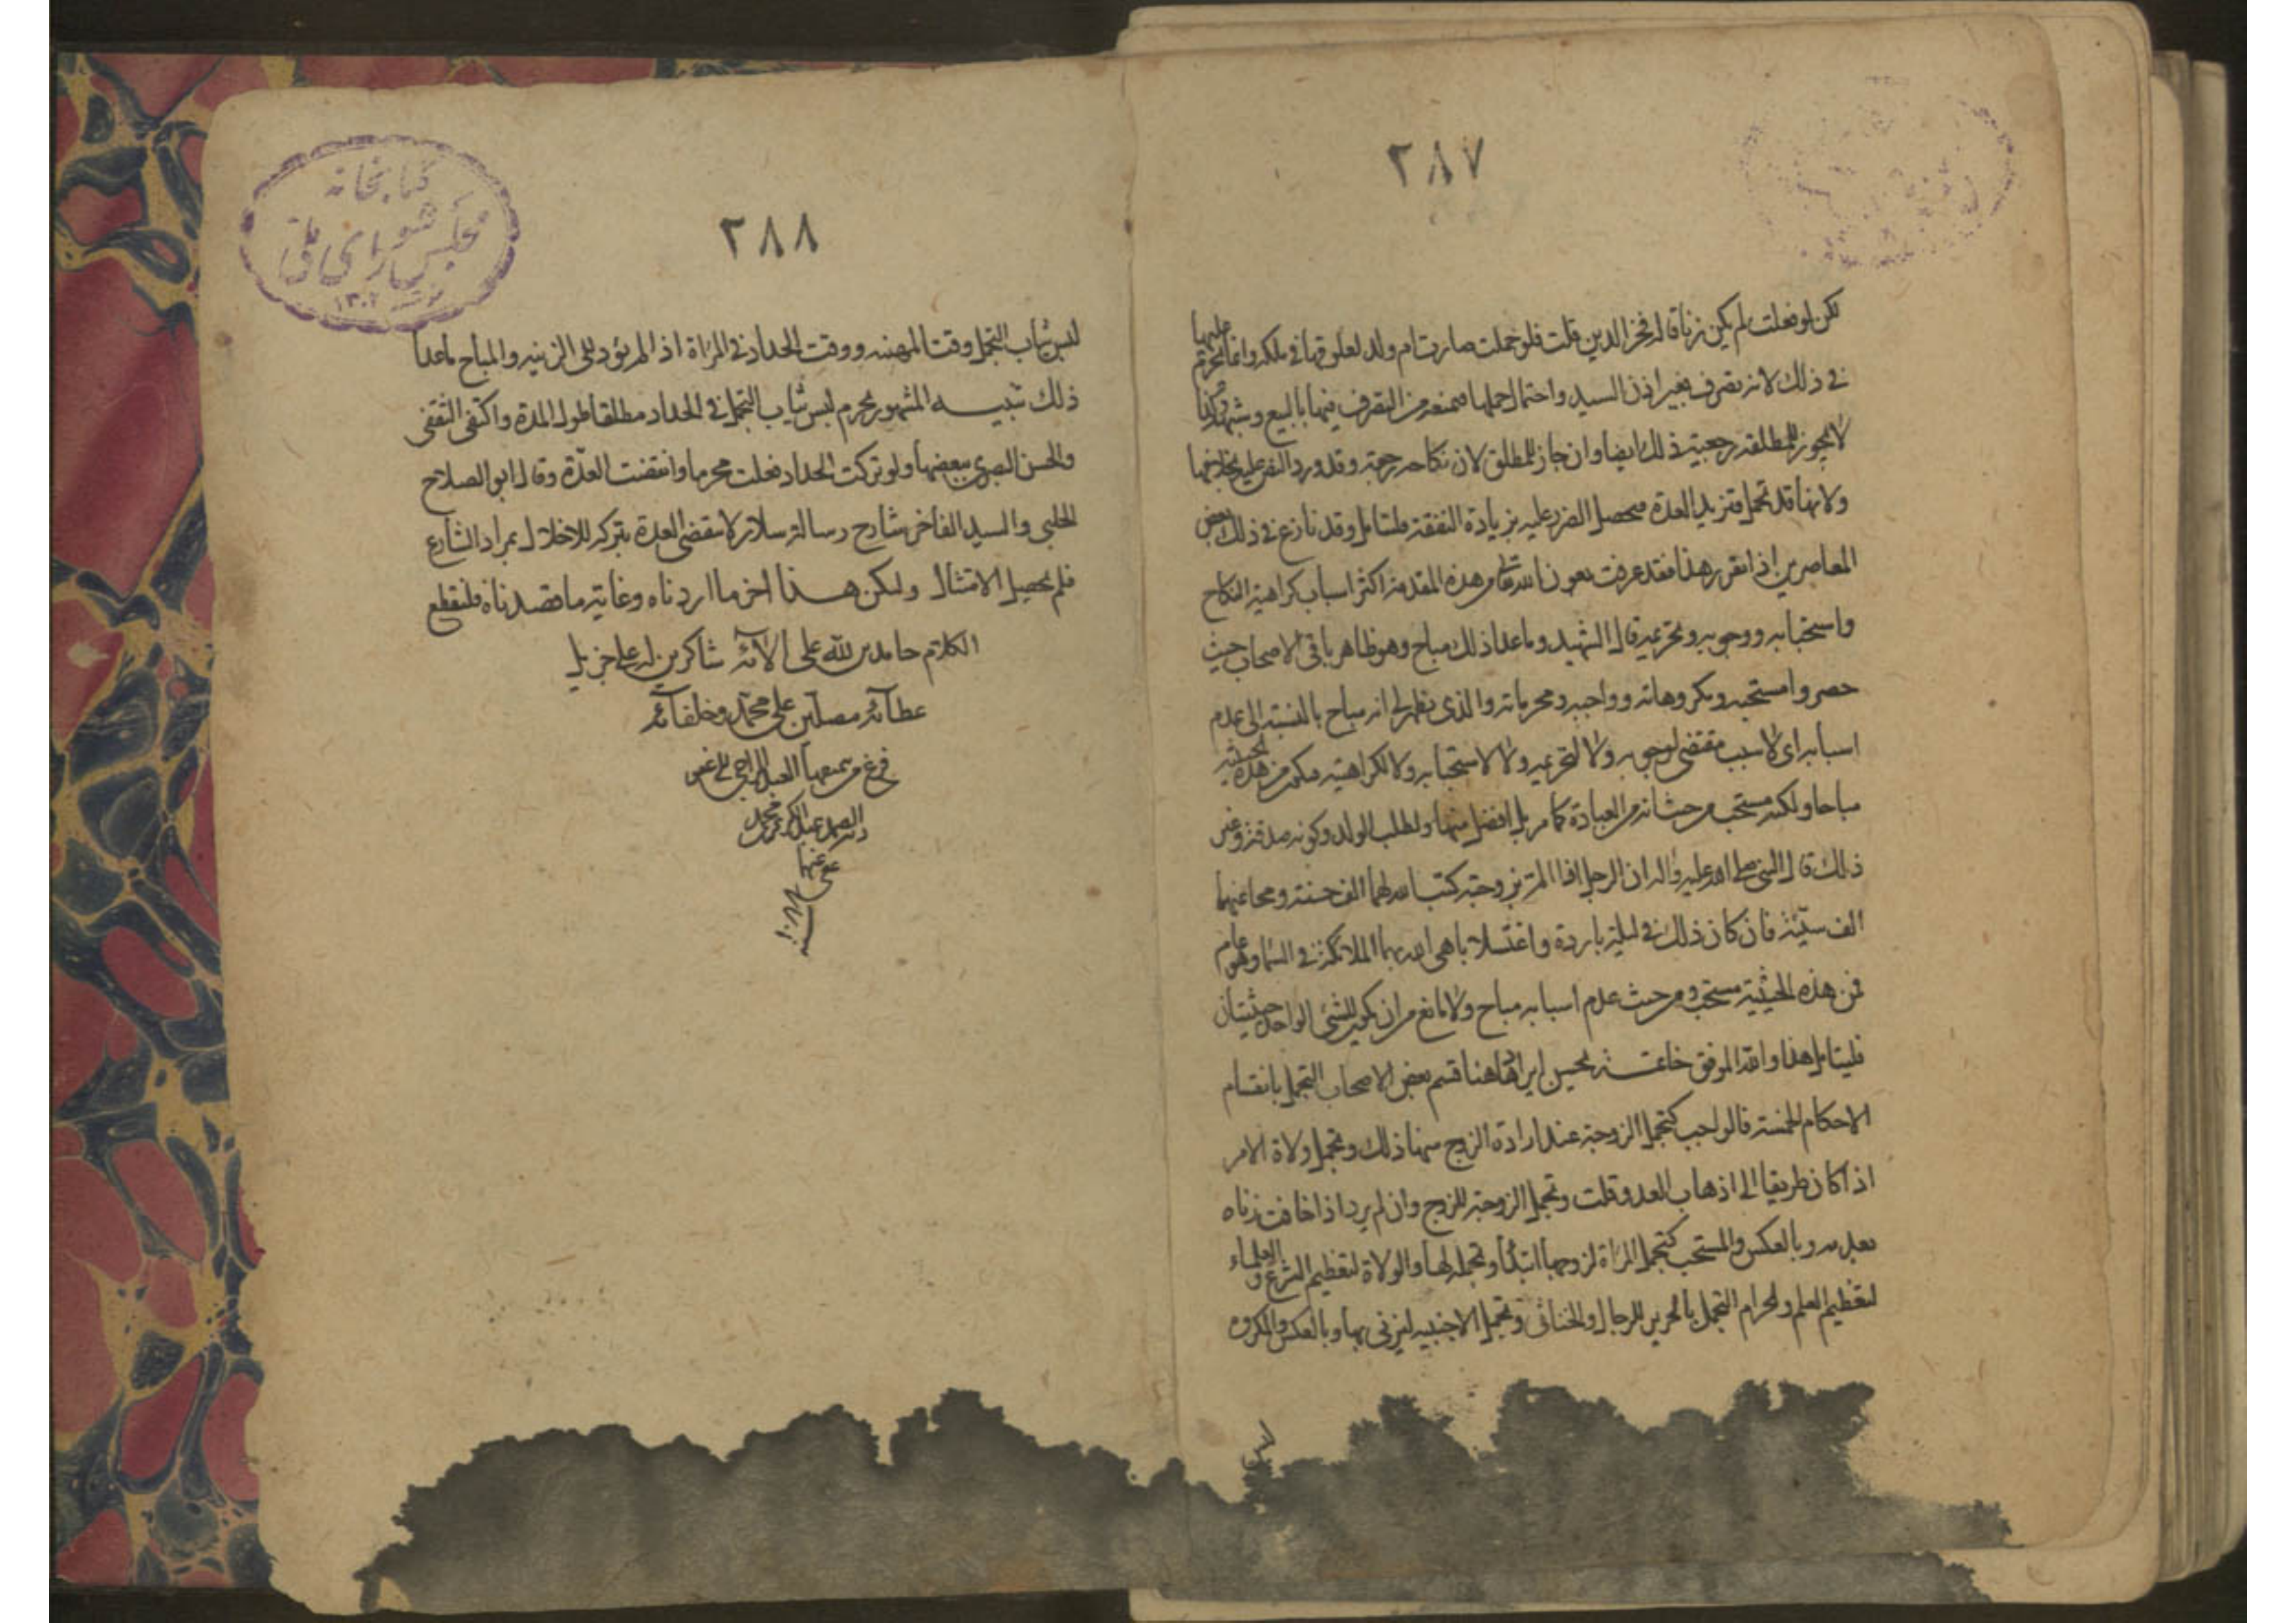 ٢٨٧
لكن لو فعلت لم يكن زنا قاله فخر الدين قلت فلو حملت صارت ام ولد لعلوقها في ملكه وانما تحرم عليها
في ذلك لانه تصرف بغير اذن السيد واحتمال حملها فمنعه من التصرف فيها بالبيع وشبهه وكذا
لا يجوز للمطلقة رجعية ذلك ايضا وان جاز للمطلق لان نكاحه رجعة وقد ورد النص عليه بخلافها
ولانها قد تحمل فتزيد العدة فيحصل الضرر عليه بزيادة النفقة فليتامل وقد نازع في ذلك بعض
المعاصرين اذا تقرر هذا فقد عرفت بعون الله تعالى من هذه المقدمة اكثر اسباب كراهية النكاح
واستحبابه ووجوبه وتحريمه قال الشهيد وما عدا ذلك مباح وهو ظاهر باقي الاصحاب حيث
حصروا مستحبه ومكروهاته وواجبه ومحرماته والذي يظهر لي انه مباح بالنسبة الى عدم
اسبابه اي لا سبب مقتضى لوجوبه ولا لتحريمه ولا لاستحبابه ولا لكراهيته فيكون من هذه الحيثية
مباحا ولكنه مستحب من حيث انه من العبادة كما مر بل افضل منها ولطلب الولد وكونه صدقة وغير
ذلك قال النبي صلى الله عليه واله ان الرجل اذا المّ بزوجته كتب الله لهما الف حسنة ومحا عنهما
الف سيّئة فان كان ذلك في ليلة باردة واغتسلا باهى الله بهما الملائكة في السما وهو عام
فمن هذه الحيثية مستحب ومن حيث عدم اسبابه مباح ولا مانع من ان يكون للشئ الواحد حيثيتان
فليتامل هذا والله الموفق خاتمــة يحسن ايرادها هنا قسم بعض الاصحاب التجمل بانقسام
الاحكام الخمسة فالواجب كتجمل الزوجة عند ارادة الزوج منها ذلك وتجمل ولاة الامر
اذا كان طريقا الى اذهاب العدو قلت وتجمل الزوجة للزوج وان لم يرد اذا خافت زناه
بعدمه وبالعكس والمستحب كتجمل المراة لزوجها ابتداء وتجمله لها والولاة لتعظيم الشرع والعلماء
لتعظيم العلم والحرام التجمل بالحرير للرجال والخناثى وتجمل الاجنبيه ليزنى بها وبالعكس والمكروه
لبس
٢٨٨
لبس ثياب التجمل وقت المهنه ووقت الحداد في المراة اذا لم يؤد الى الزينه والمباح ماعدا
ذلك تنبيــه المشهور تحريم لبس ثياب التجمل في الحداد مطلقا طول المدة واكتفى الثقفي
والحسن البصري ببعضها ولو تركت الحداد فعلت محرما وانقضت العدّة وقال ابو الصلاح
الحلبي والسيد الفاخر شارح رسالة سلار لا تنقضي العدة بتركه للاخلال بمراد الشارع
فلم يحصل الامتثال وليكن هــذا اخر ما اردناه وغاية ما قصدناه فلنقطع
الكلام حامدين لله على الآئه شاكرين له على جزيل
عطآئه مصلين على محمد وخلفائه
فرغ من تنميقها العبد الراجي الى عفو
الصمد عبد الكريم بن محمد
عفى عنهما
سنة ١٠٨٨
كتابخانه
مجلس شوراى ملى
١٣٠٢